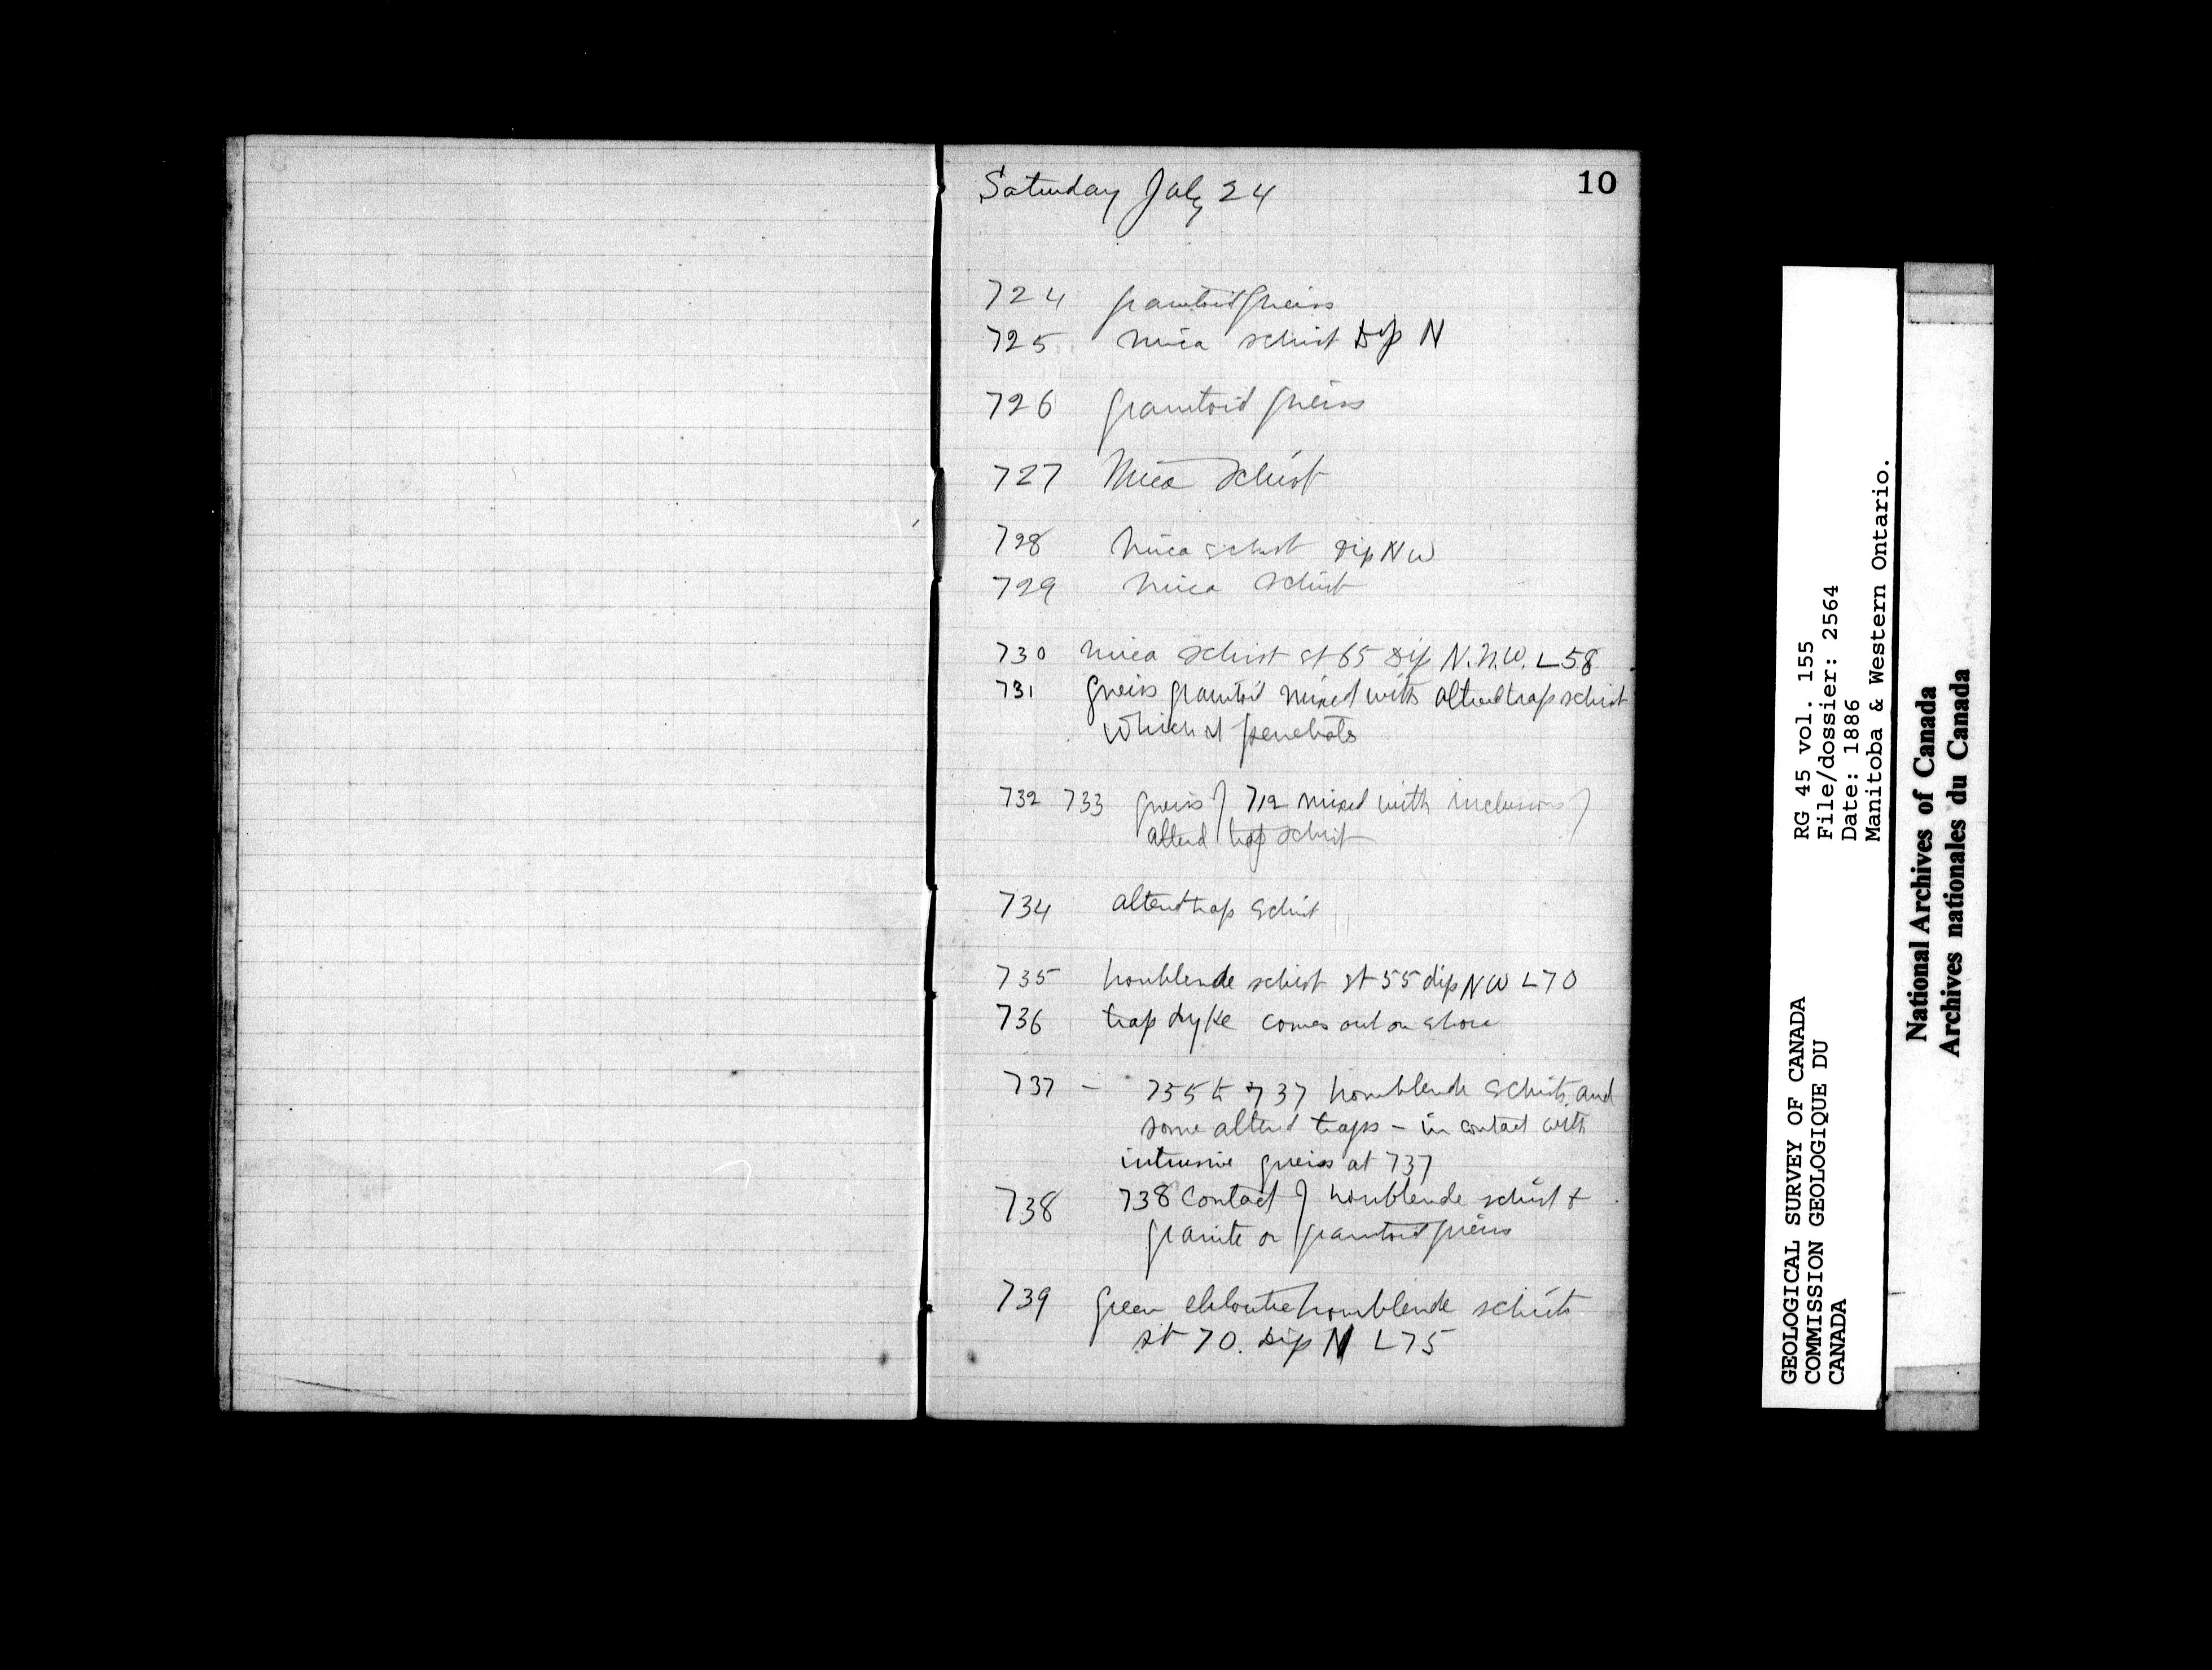 10
Saturday July 24
724 granitoid gneiss
725 mica schist Dip N
726 granitoid gneiss
727 Mica Schist
728 mica schist dip NW
729 mica schist
730 mica schist st 65 Dip N.N.W. L58
731 gneiss granitoid mixed with altered trap schist
which it penetrates
732 733 gneiss of 712 mixed with inclusions of
altered trap schist
734 altered trap schist
735 hornblende schist st 55 dip NW L70
736 trap dyke comes out on shore
737 - 735 to 737 hornblende schists and
some altered traps - in contact with
intrusive gneiss at 737
738 738 Contact of hornblende schist &
granite or granitoid gneiss
739 Green chloritic hornblende schists
st 70. Dip N L75
GEOLOGICAL SURVEY OF CANADA
COMMISSION GEOLOGIQUE DU
CANADA
RG 45 vol. 155
File/dossier: 2564
Date: 1886
Manitoba & Western Ontario.
National Archives of Canada
Archives nationales du Canada